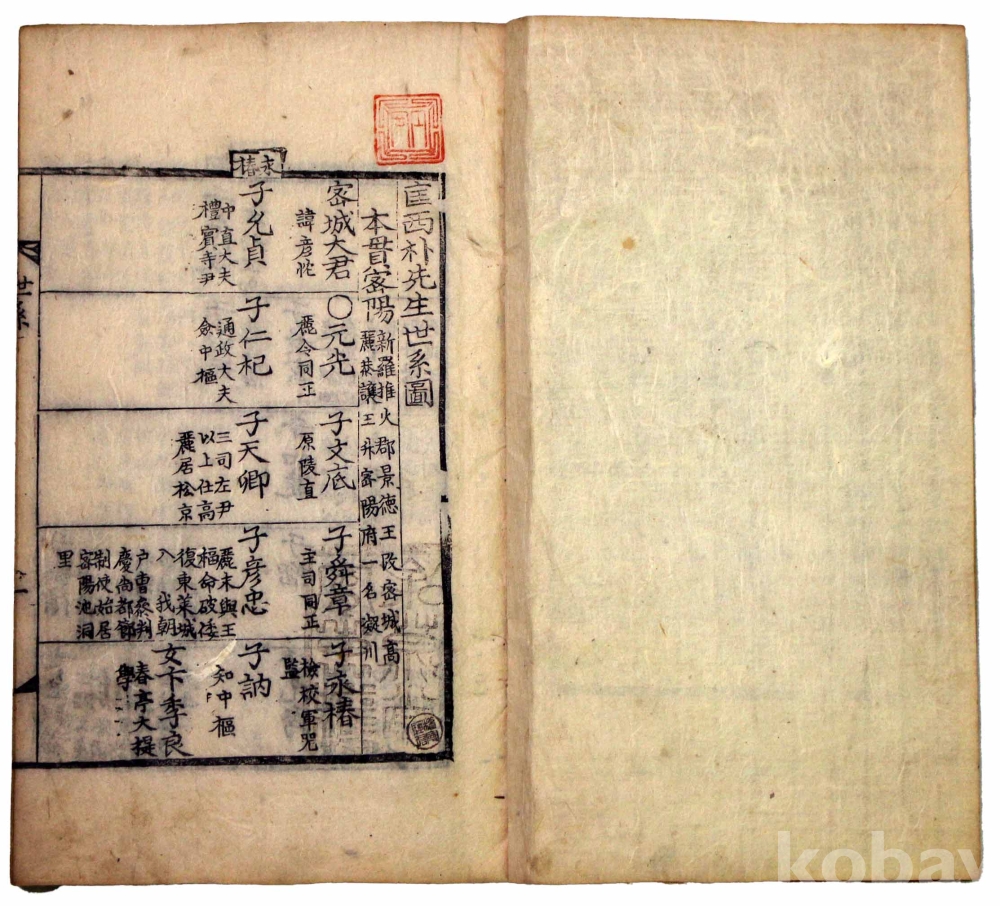 匡西朴先生世系圖
本貫密陽
新羅推火郡景德王改密城高
麗恭讓王升密陽府一名凝川
密城大君
諱彦忱
○元光
麗令同正
子文底
原陵直
子舜章
主司同正
子永椿
檢校軍器
監
永椿
子允貞
中直大夫
禮賓寺尹
子仁杞
通政大夫
僉中樞
子天卿
三司左尹
以上仕高
麗居松京
子彦忠
麗末與王
樞命破倭
復東萊城
入 我朝
户曹叅判
慶尚都節
制使始居
密陽池洞
里
子訥
知中樞
女卞季良
春亭大提
學
世系
kobay